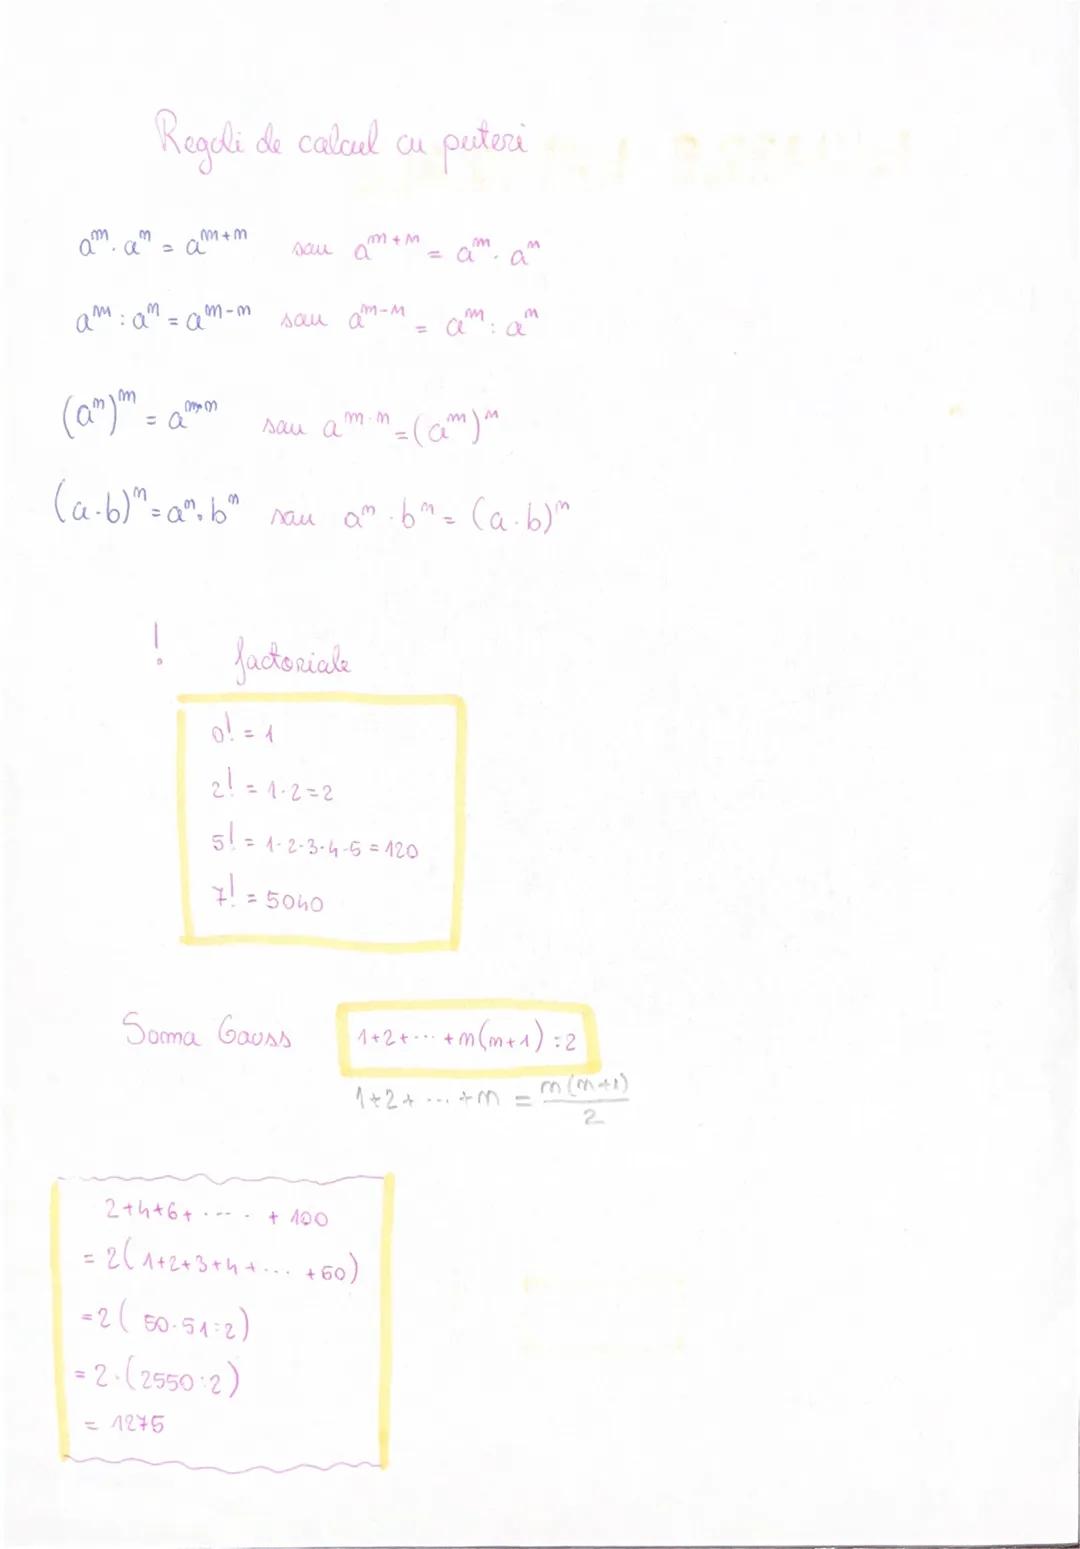 Reguli de calcul cu puteri
aᵐ · aⁿ = aᵐ⁺ⁿ sau aᵐ⁺ⁿ = aᵐ · aⁿ
aᵐ : aⁿ = aᵐ⁻ⁿ sau aᵐ⁻ⁿ = aᵐ : aⁿ
(aᵐ)ⁿ = aᵐ·ⁿ sau aᵐ·ⁿ = (aᵐ)ⁿ
(a·b)ⁿ = aⁿ·bⁿ sau aⁿ · bⁿ = (a·b)ⁿ
! factoriale
0! = 1
2! = 1·2=2
5! = 1·2·3·4·5 = 120
7! = 5040
Soma Gauss 1+2+···+n(n+1) :2
1+2+ ... +n = n(n+1)/2
2+4+6+ ···· + 100
= 2(1+2+3+4+... +50)
=2( 50·51:2)
= 2·(2550:2)
= 1275